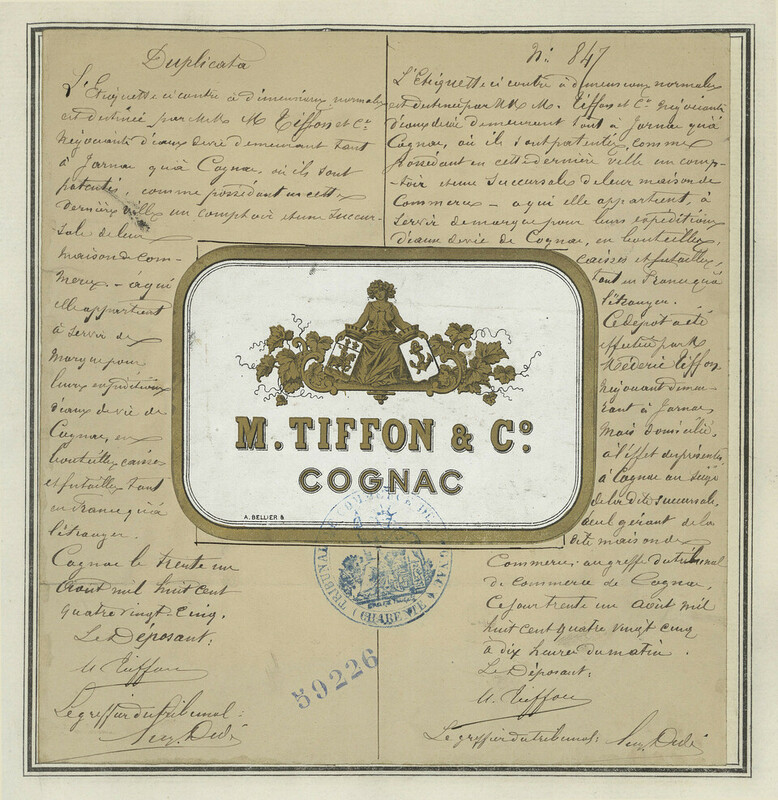 Duplicata
L'Etiquette ci contre à dimensions normales
est destinée par MM. M Tiffon et Cie
Négociants d'eaux de vie demeurant tant
à Jarnac qu'à Cognac, où ils sont
patentés, comme possédant en cette
dernière ville un comptoir et une succur-
sale de leur
maison de com-
merce. - à qui
elle appartient
à servir de
marque pour
leurs expéditions
d'eaux de vie de
Cognac, en
bouteilles caisses
et futailles tant
en France qu'à
l'étranger.
Cognac le trente un
Août mil huit cent
quatre vingt cinq.
Le Déposant:
M Tiffon
Le greffier du tribunal:
No. 847
L'Etiquette ci contre à dimensions normales
est destinée par MM. M. Tiffon et Cie négociants
d'eaux de vie demeurant tant à Jarnac qu'à
Cognac, où ils sont patentés, comme
possédant en cette dernière ville un comp-
toir et une succursale de leur maison de
Commerce - à qui elle appartient, à
servir de marque pour leurs expéditions
d'eaux de vie de Cognac, en bouteilles,
caisses et futailles,
tant en France qu'à
l'étranger.
Ce dépôt a été
effectué par M
Médéric Tiffon
Négociant demeu-
rant à Jarnac
mais domicilié,
à l'effet des présentes
à Cognac au siège
de la dite succursale,
seul gérant de la
dite maison de
Commerce, au greffe du tribunal
de commerce de Cognac,
Ce jour trente un août mil
huit cent quatre vingt cinq
à dix heures du matin.
Le Déposant:
M. Tiffon
Le greffier du tribunal:
M. TIFFON & Cº.
COGNAC
A. BELLIER &
TRIBUNAL DE COMMERCE DE COGNAC
(CHARENTE)
59226